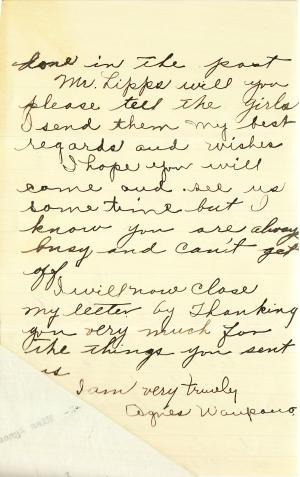 done in the past
Mr. Lipps will you
please tell the girls
I send them my best
regards and wishes
I hope you will
come and see us
some time but I
know you are always
busy and can't get
off
I will now close
my letter by Thanking
you very much for
the things you sent
us
I am very truely
Agnes Waupano.